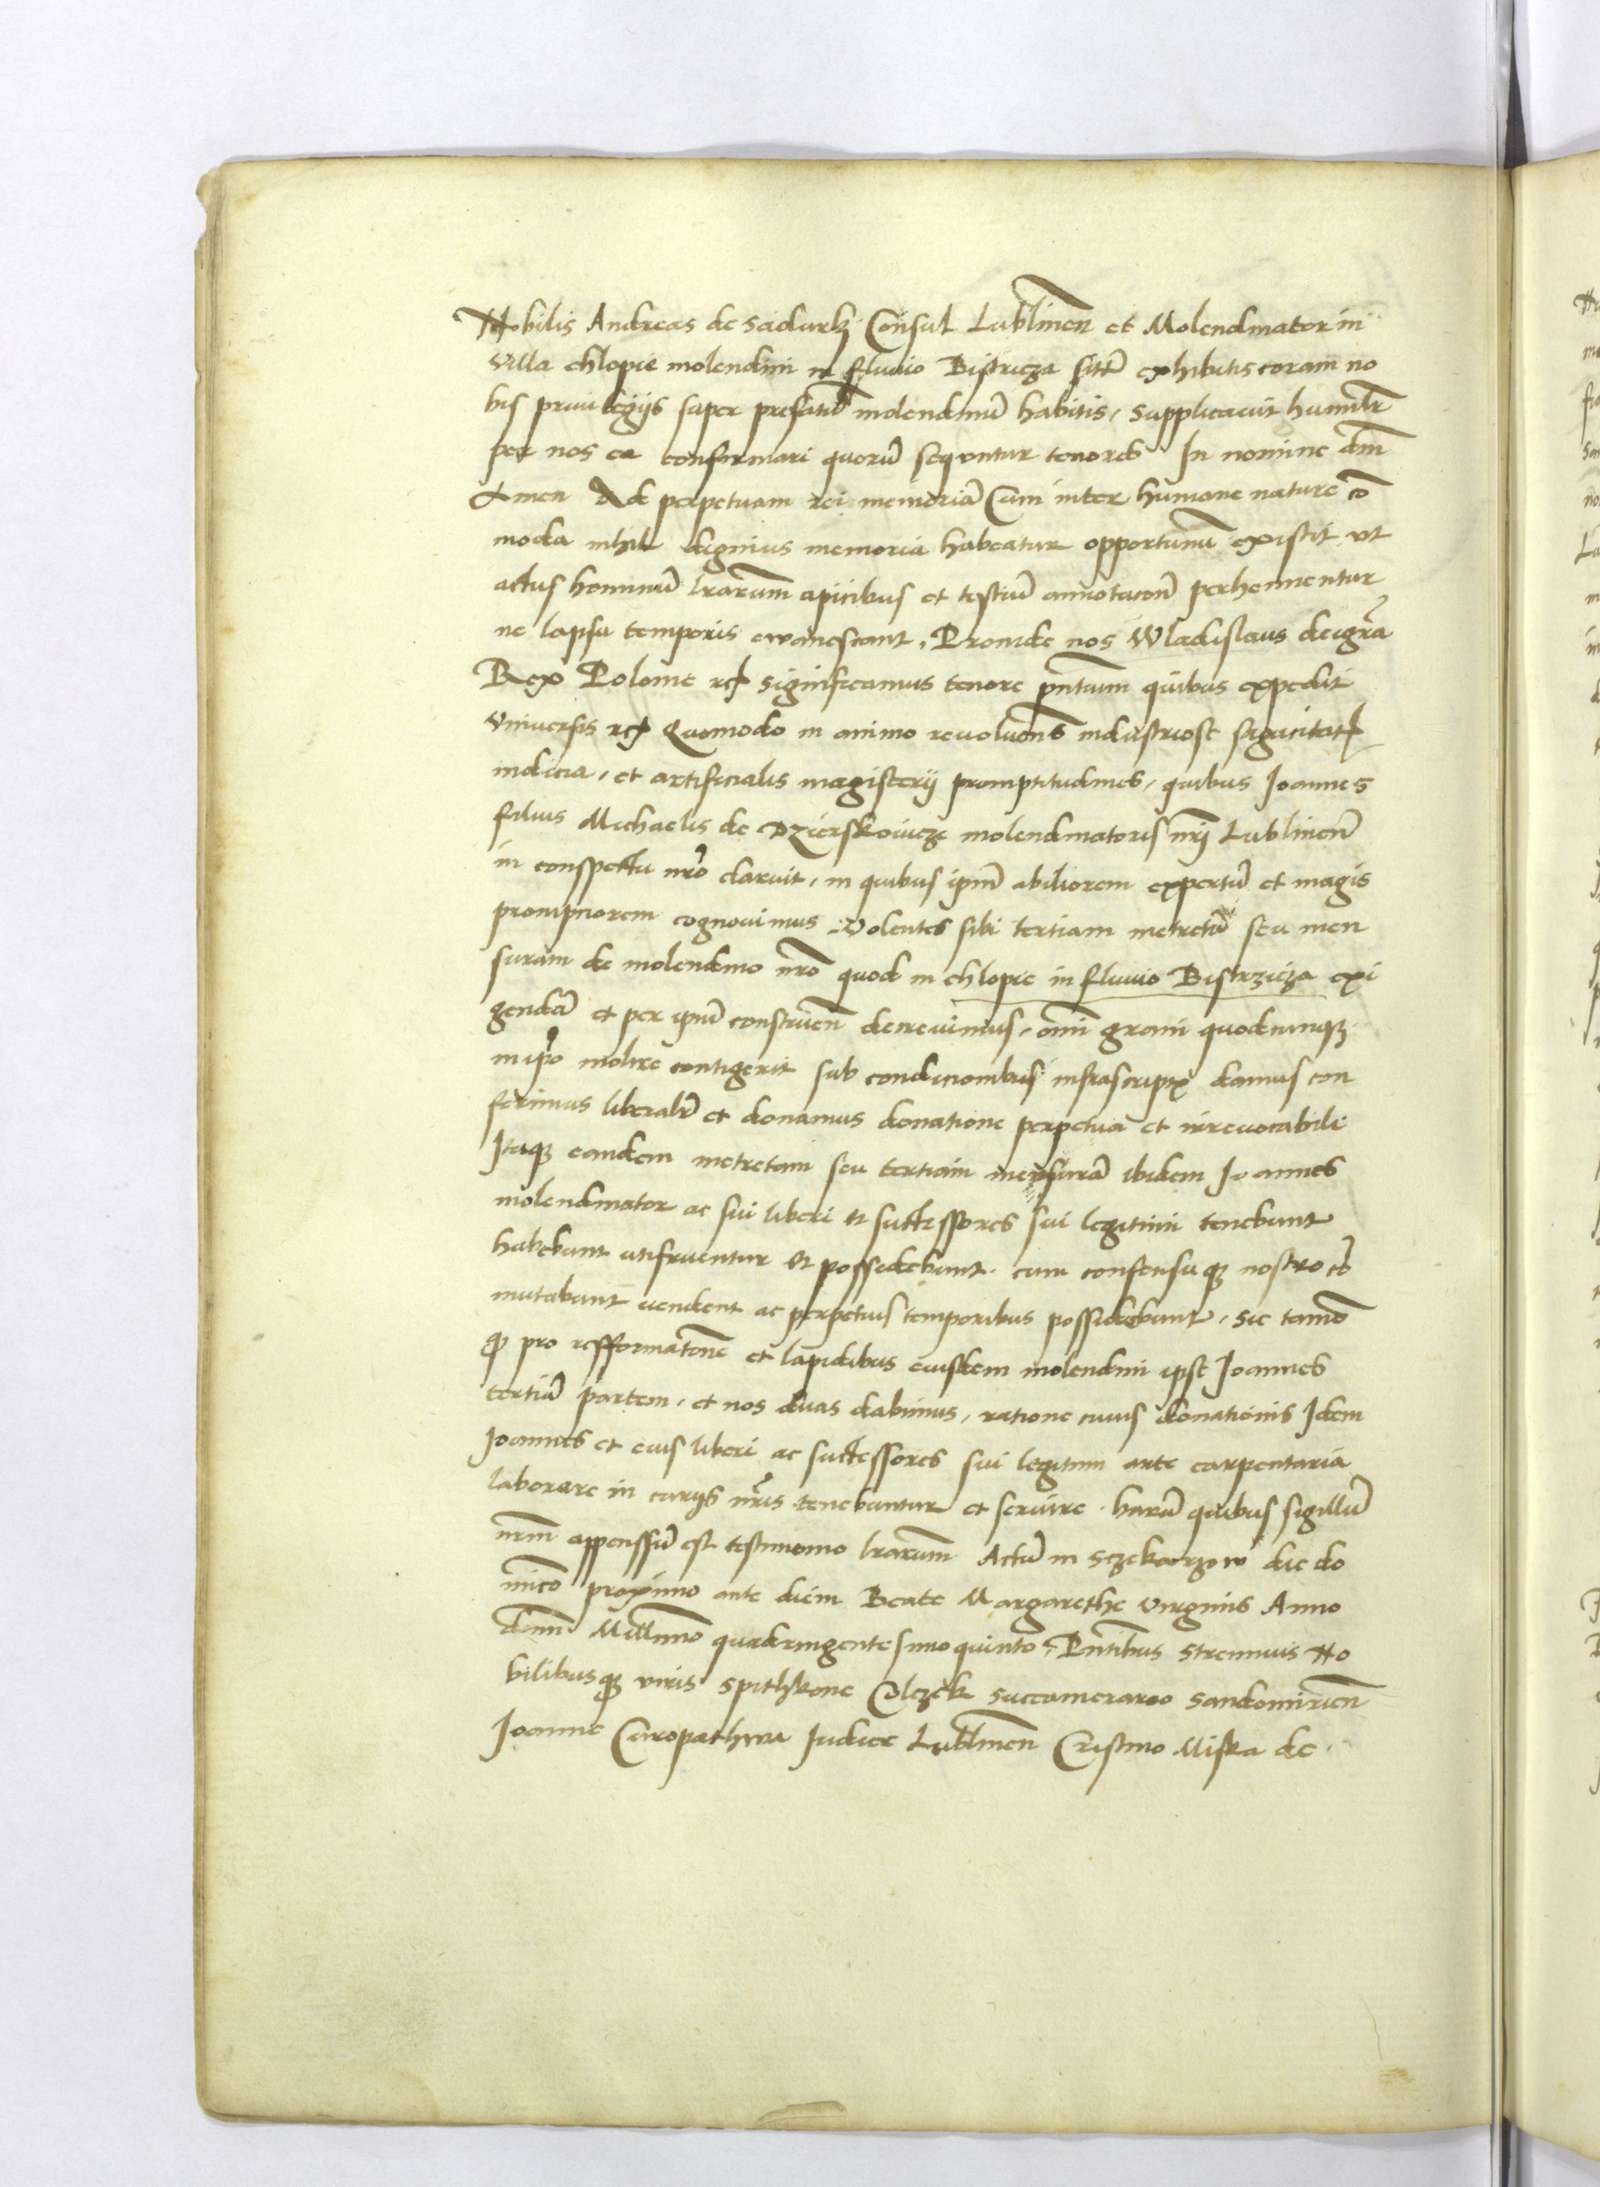 Nobilis Andreas de Sadurki Consul Lublinen̄ et Molendinator in
villa chlopie molendini in fluuio Bistricza siti exhibitis coram no
bis priuilegijs super prefatū molendinū habitis, supplicauit humilr̄
per nos ea confirmari quorū sequntur tenores In nomine dn̄i
Amen Ad perpetuam rei memoriā Cum inter humane nature cō
moda nihil dignius memoria habeatur opportunū existit vt
actus hominū lr̄arum apicibus et testiū annotacōne perhennentur
ne lapsu temporis evanescant, Proinde nos Wladislaus dei gr̄a
Rex Polonie etc significamus tenore pn̄tium quibus expedit
vniuersis etc Quomodo in animo reuoluen̄s industriose sagacitatis
indicia, et artificialis magisterij promptitudines, quibus Joannes
filius Michaelis de Dzierskouicze molendinatoris nr̄i Lublinen̄
in conspectu nr̄o claruit, in quibus ipm̄ abiliorem expertū et magis
prompciorem cognouimus, Volentes sibi tertiam metretā seu men
suram de molendino nr̄o quod in chlopie in fluuio Bistrzicza exi
gendā et per ipm̄ construen̄ decreuimus, om̄i grani quodcunq
in ip̄o molere contigerit sub condicionibus infrascriptis damus con
ferimus liberalr̄ et donamus donatione perpetua et irreuocabili
Itaq eandem metretam seu tertiam mensurā ibidem Joannes
molendinator ac sui liberi et successores sui legitimi tenebunt
habebunt utifruentur et possidebunt, cum consensuq nostro cō
mutabunt uendent ac perpetuis temporibus possidebunt, sic tamē
q pro refformatōne et lapidibus eiusdem molendini ipse Joannes
tertiā partem, et nos duas dabimus, ratione cuius donationis Idem
Joannes et eius liberi ac successores sui legitimi arte carpentaria
laborare in curijs nr̄is tenebuntur et seruire, harū quibus sigillū
nrm̄ appenssū est testimonio lr̄arum Actū in Sczekarzow die do
minico proximo ante diem Beate Margarethe virginis Anno
dn̄i Millimo quadringentesimo quinto, Pn̄tibus strennuis No
bilibusq viris Spithkone Colczek succamerario Sandomirien̄
Joanne Curopathwa Judice Lublinen̄ Cristino Miska de